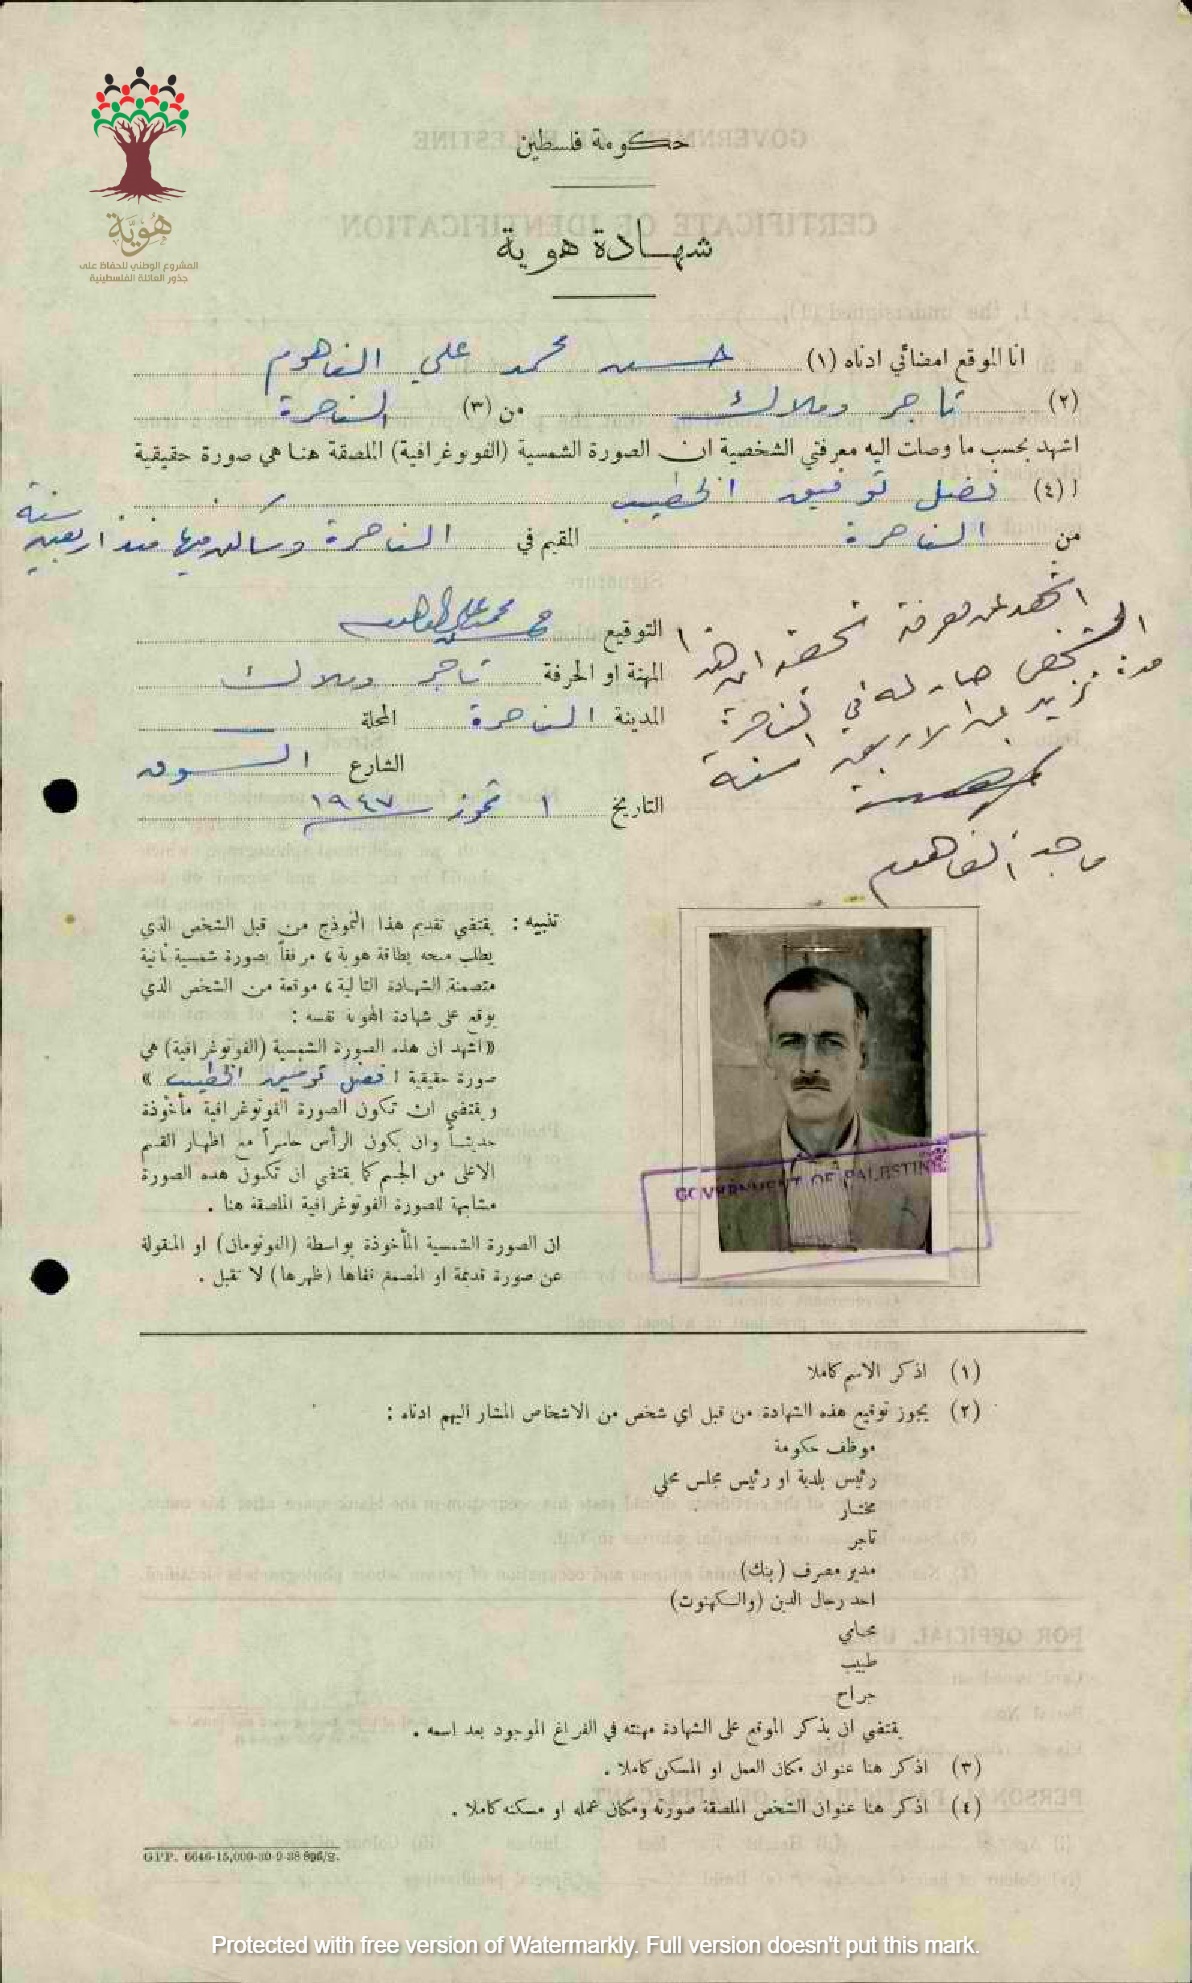 هُوَيَّة
المشروع الوطني للحفاظ على
جذور العائلة الفلسطينية
حكومة فلسطين
شهادة هوية
انا الموقع امضائي ادناه (١) حسن محمد علي الفاهوم
(٢) تاجر وملاك من (٣) الناصرة
اشهد بحسب ما وصلت اليه معرفتي الشخصية ان الصورة الشمسية (الفوتوغرافية) الملصقة هنا هي صورة حقيقية
ا (٤) فضل توفيق الخطيب
من الناصرة المقيم في الناصرة وساكن فيها منذ اربعين سنة
التوقيع
المهنة او الحرفة تاجر وملاك
المدينة الناصرة المحلة
الشارع السوق
التاريخ ١ تموز ١٩٤٧
اشهد عن معرفة شخصية ان هذا
الشخص صار له في الناصرة مدة
تزيد عن الاربعين سنة
ماجد الفاهوم
تنبيه : يقتضي تقديم هذا النموذج من قبل الشخص الذي
يطلب منحه بطاقة هوية ، مرفقاً بصورة شمسية ثانية
متضمنة الشهادة التالية ، موقعة من الشخص الذي
يوقع على شهادة الهوية نفسه :
«اشهد ان هذه الصورة الشمسية (الفوتوغرافية) هي
صورة حقيقية ا فضل توفيق الخطيب »
ويقتضي ان تكون الصورة الفوتوغرافية مأخوذة
حديثاً وان يكون الرأس حاسراً مع اظهار القسم
الاعلى من الجسم كما يقتضي ان تكون هذه الصورة
مشابهة للصورة الفوتوغرافية الملصقة هنا .
ان الصورة الشمسية المأخوذة بواسطة (الفوتومان) او المنقولة
عن صورة قديمة او المصمغ قفاها (ظهرها) لا تقبل .
GOVERNMENT OF PALESTINE
(١) اذكر الاسم كاملا
(٢) يجوز توقيع هذه الشهادة من قبل اي شخص من الاشخاص المشار اليهم ادناه :
موظف حكومة
رئيس بلدية او رئيس مجلس محلي
مختار
تاجر
مدير مصرف (بنك)
احد رجال الدين (والكهنوت)
محامي
طبيب
جراح
يقتضي ان يذكر الموقع على الشهادة مهنته في الفراغ الموجود بعد اسمه .
(٣) اذكر هنا عنوان مكان العمل او المسكن كاملا .
(٤) اذكر هنا عنوان الشخص الملصقة صورته ومكان عمله او مسكنه كاملا .
GPP. 6646-15,000-30-9-38 896/2.
Protected with free version of Watermarkly. Full version doesn't put this mark.